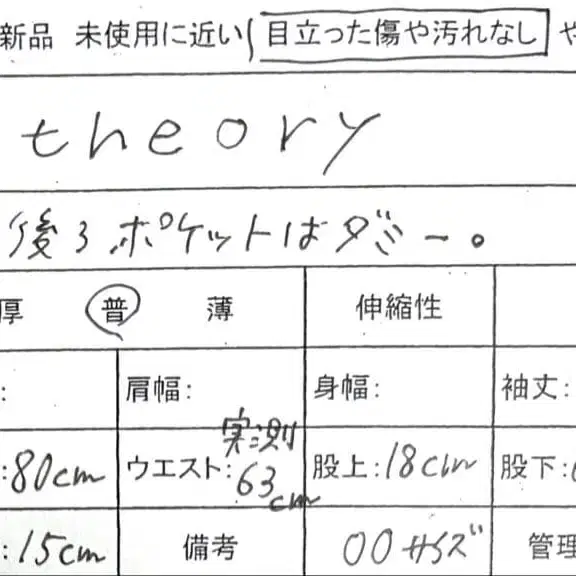 新品 未使用に近い 目立った傷や汚れなし や
theory
後ろポケットはダミー。
厚 普 薄 伸縮性
: 肩幅: 身幅: 袖丈:
:80cm ウエスト:実測63cm 股上:18cm 股下:
:15cm 備考 00サイズ 管理